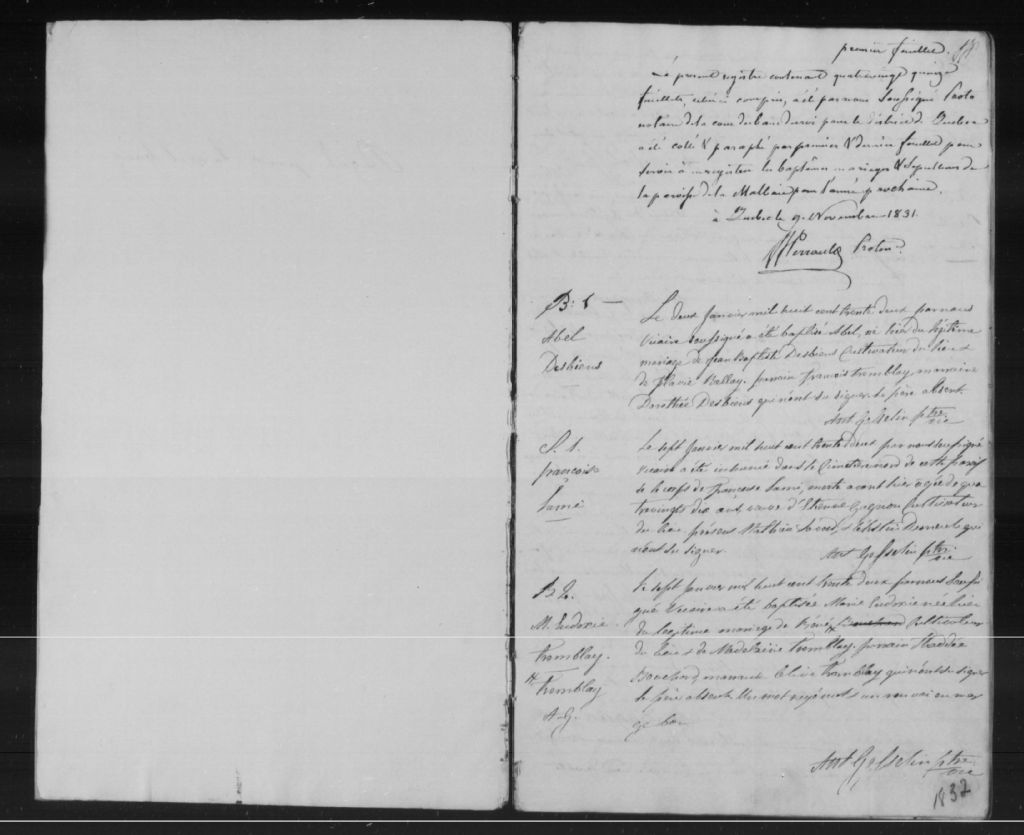 premier feuillet.
Le présent registre contenant quatrevingt quinze
feuillets, celui-ci compris, a été par nous Soussigné Proto
notaire de la cour du banc du roi pour le district de Québec
a été cotté & paraphé par premier & dernier feuillet pour
servir à enregistrer les baptêmes mariages & sépultures de
la paroisse de la Malbaie pour l'année prochaine.
à Québec le 9. Novembre 1831.
Perrault Proton.
B. 1
Abel
Desbiens
Le deux Janvier mil huit cent trente deux par nous
Vicaire soussigné a été baptisé Abel, né hier du légitime
mariage de Jean Baptiste Desbiens Cultivateur du lieu &
de Flavie Ballay. parrain françois Tremblay marraine
Dorothée Desbiens qui n'ont su signer. Le père absent.
Ant Gosselin ptre
vic
S. 1.
françoise
Lamé
Le sept Janvier mil huit cent trente deux par nous soussigné
vicaire a été inhumé dans le Cimetière de cette paroisse
le corps de françoise Lamé, morte avant hier agée de qua
trevingts dix ans, veuve d'Etienne Gagnon Cultivateur
du lieu présens
n'ont su signer.
Ant Gosselin ptre
vic
B 2.
M. Eudoxie
Tremblay.
Tremblay
A. G.
Le sept Janvier mil huit cent trente deux par nous soussi
gné Vicaire a été baptisée Marie Eudoxie née hier
du légitime mariage de Cultivateur
du lieu & de Madelaine Tremblay. parrain Thaddée
Bouchard marraine Olive Tremblay qui n'ont su signer
le père absent. Un mot rayé nul & un renvoi en mar
ge bon
Ant Gosselin ptre
vic
1832